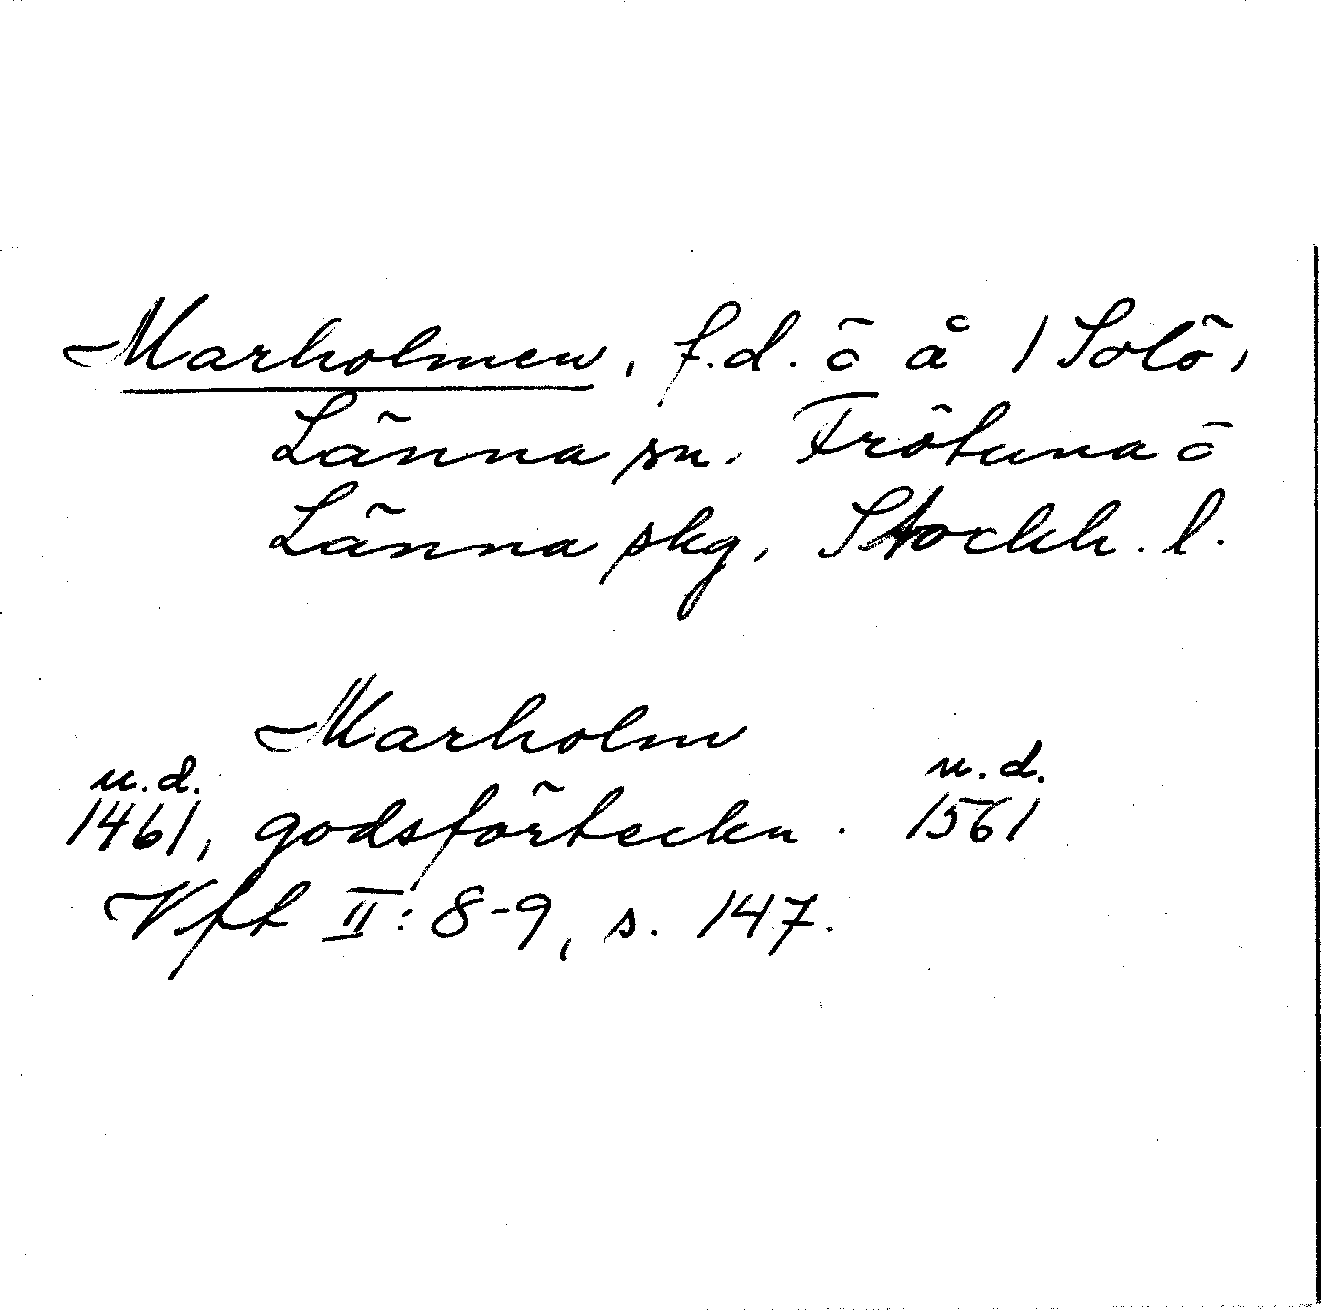 Marholmen, f.d. ö å / Solö,
Länna sn. Frötuna ö
Länna skg, Stockh. l.
Marholm
u.d. u.d.
1461, godsförteckn. 1561
Vft II: 8-9, s. 147.